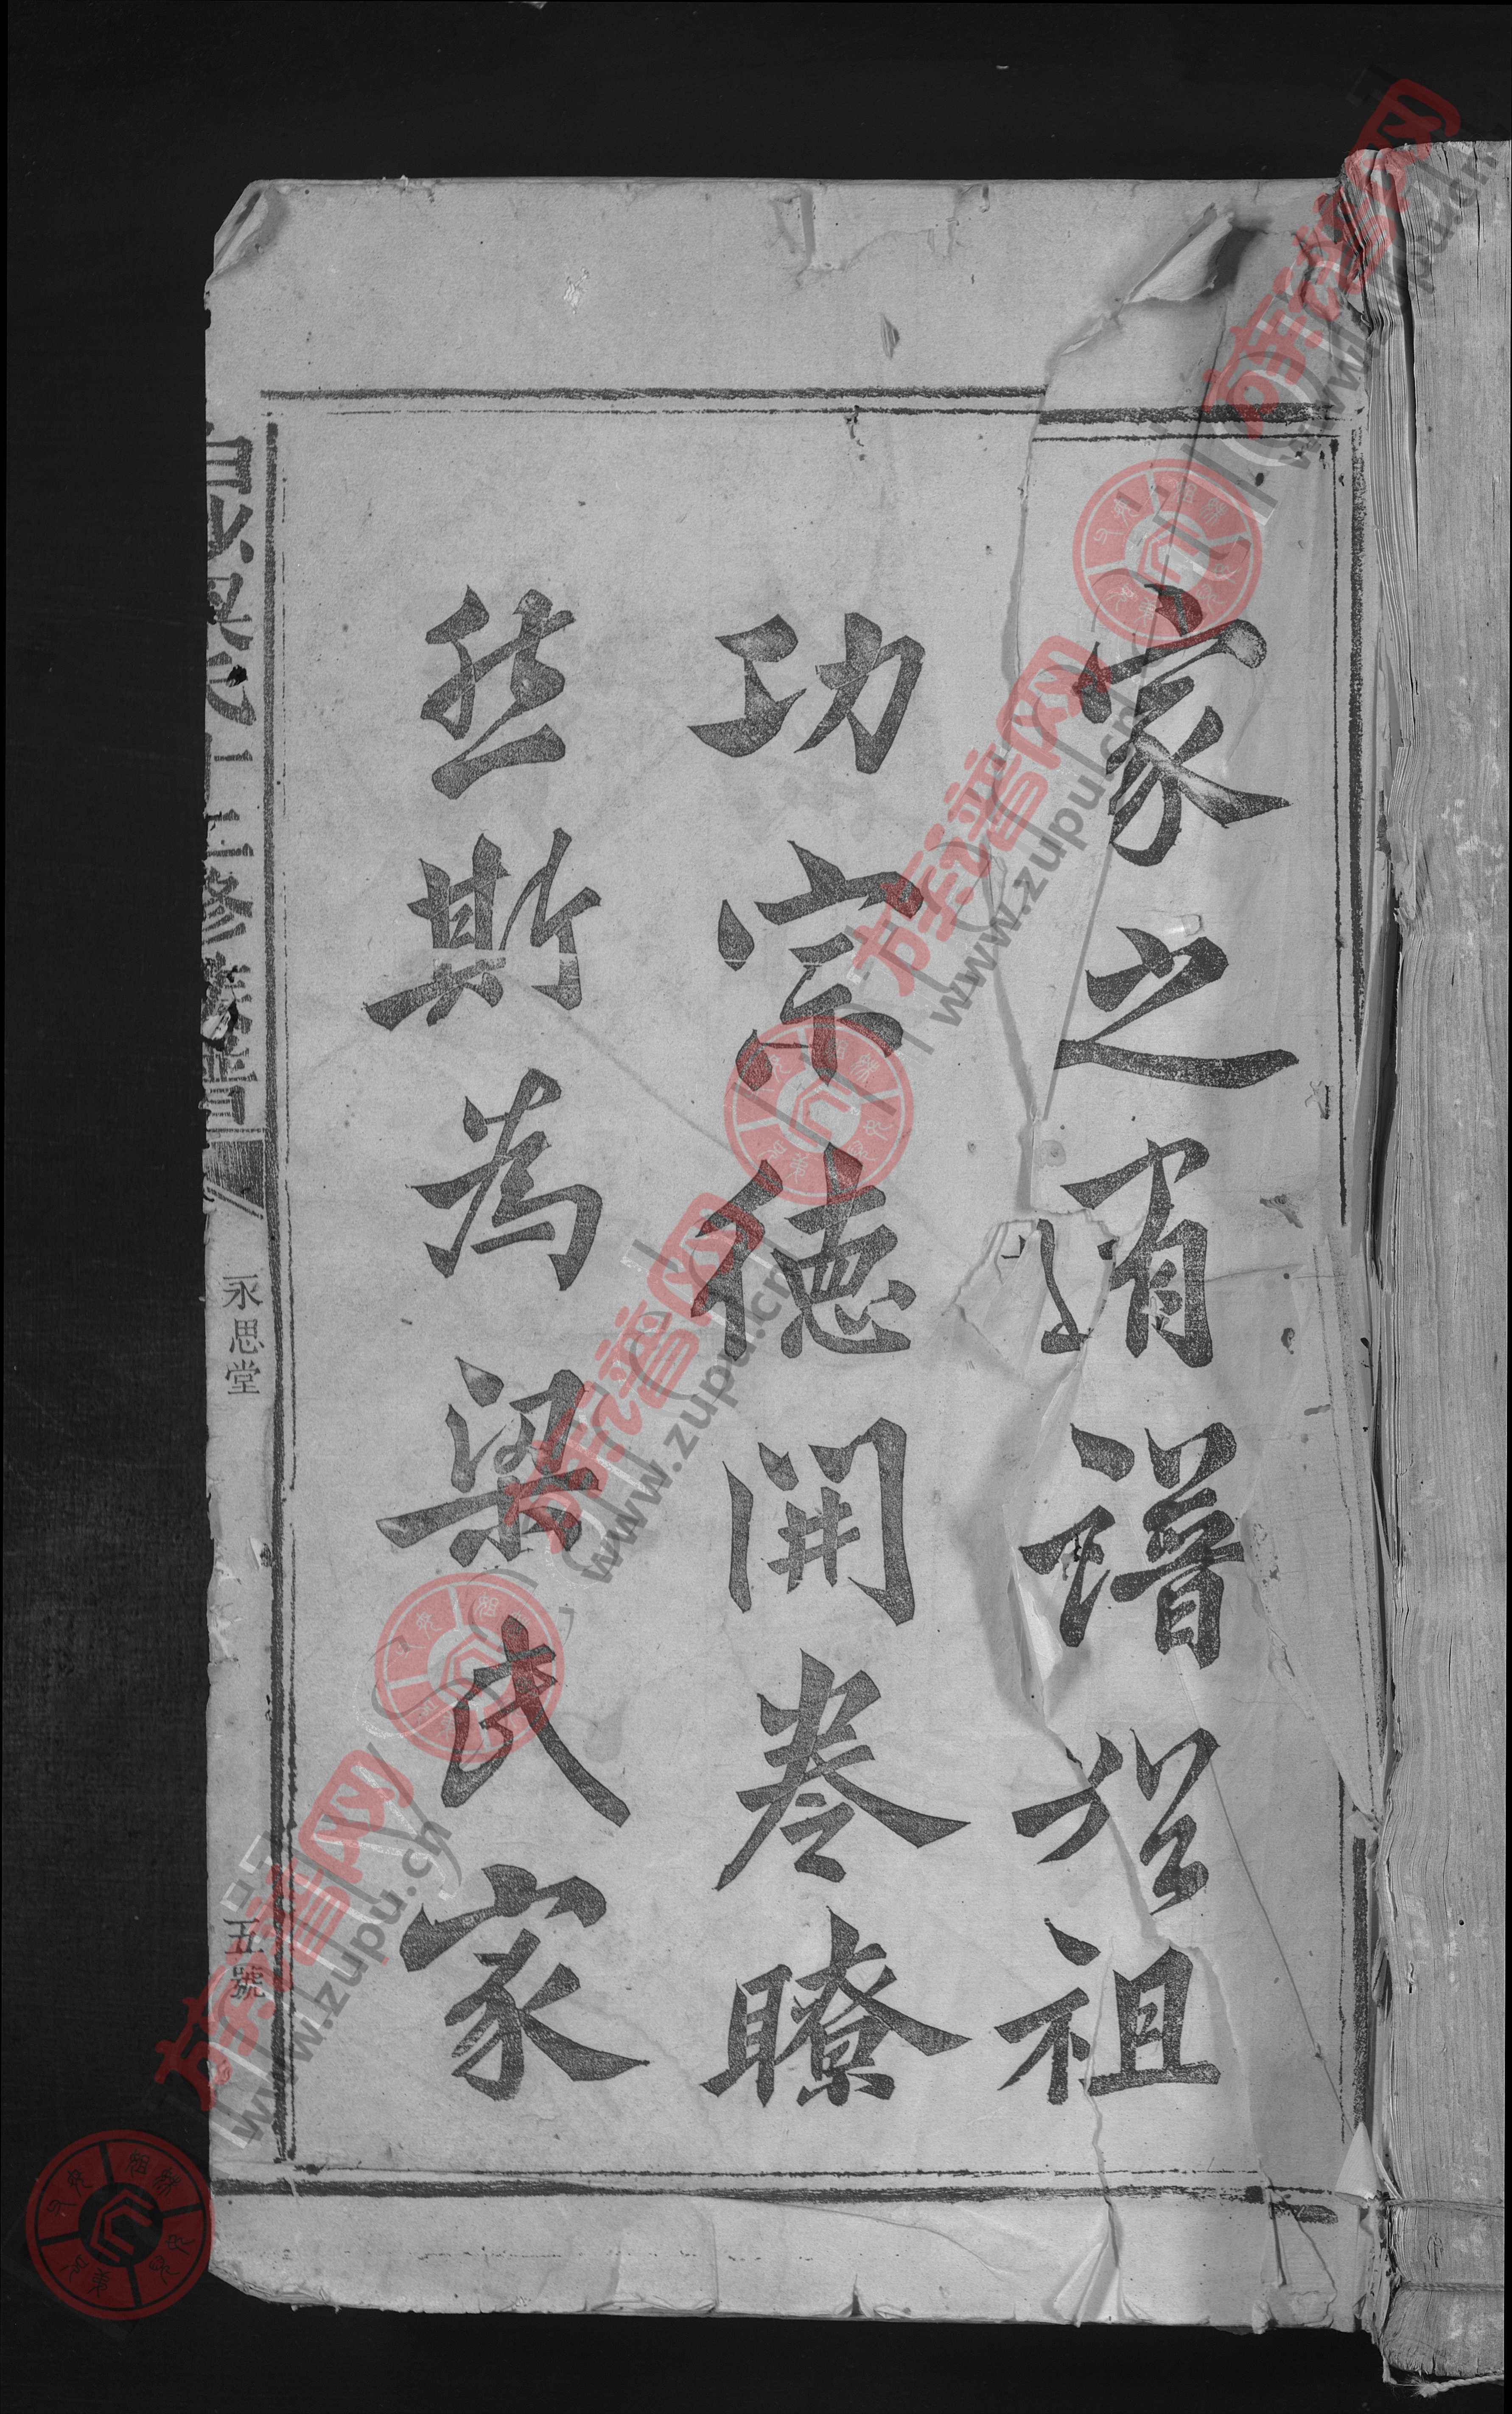 家之有譜從祖
功宗德開卷瞭
然斯為梁氏家
梁氏 修族譜
永思堂
五號
古薪譜网
www.zupu.cn